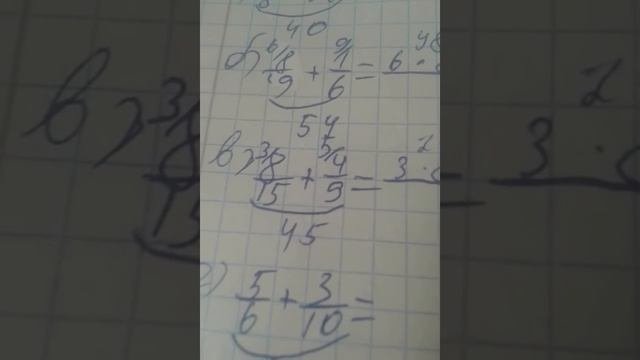 40
б) 6/ 8/9 + 9/ 1/6 = 6 ·
54
в) 3/ 8/15 + 5/ 4/9 = 3 ·
45
5/6 + 3/10 =